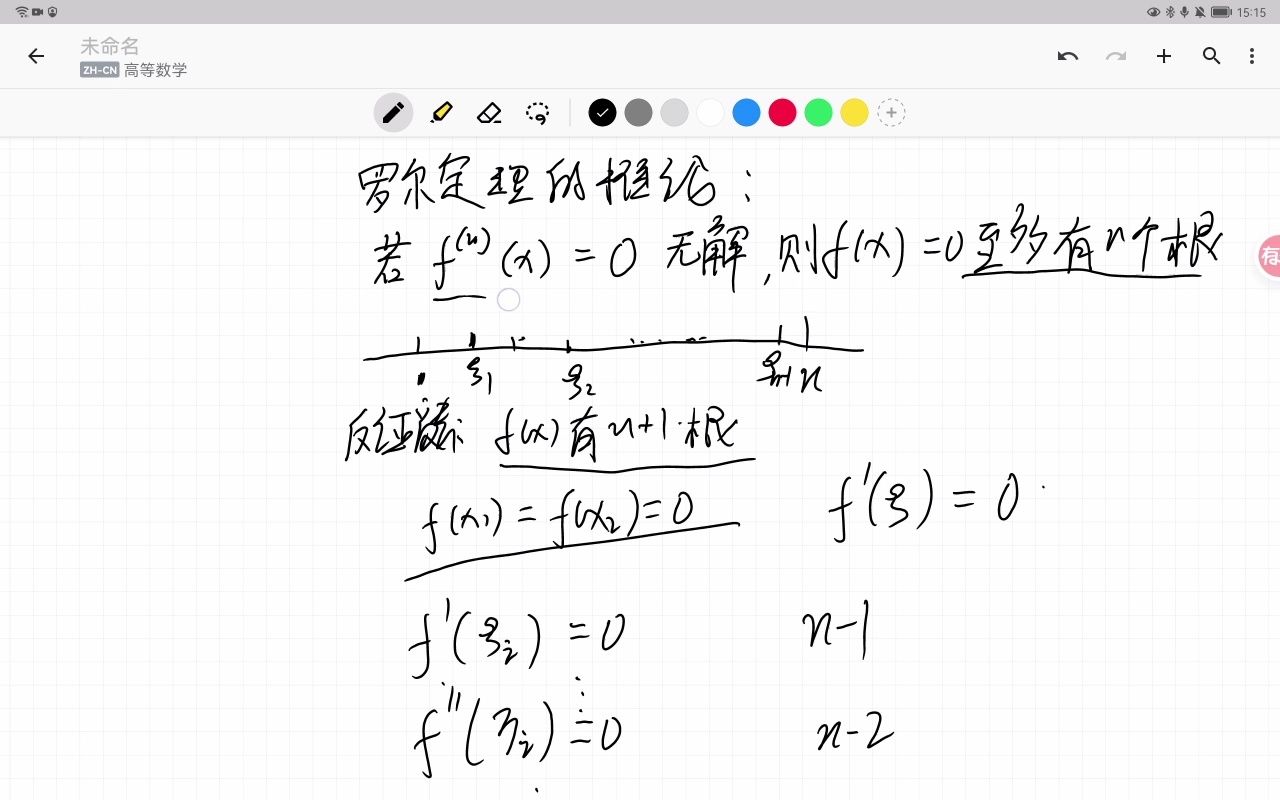 15:15
未命名
ZH-CN 高等数学
罗尔定理的推论：
若 f⁽ⁿ⁾(x) = 0 无解，则f(x) = 0 至多有n个根
ξ₁ ξ₂ n
反证 f(x)有n+1个根
f(x₁) = f(x₂) = 0 f'(ξ) = 0
f'(ξᵢ) = 0 n-1
f''(ηᵢ) = 0 n-2
有